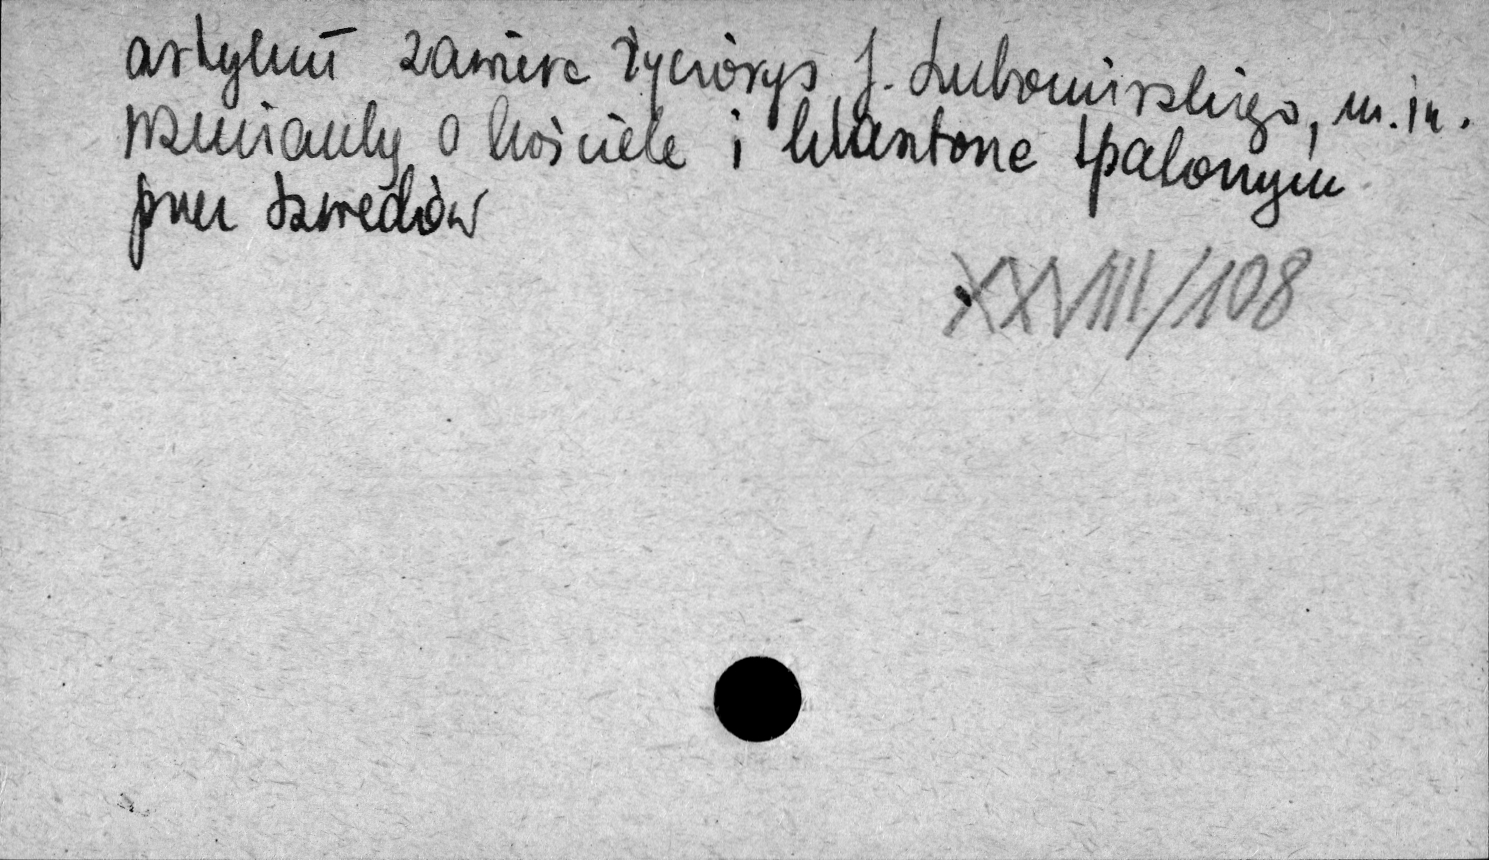 artykuł zawiera życiorys J. Lubomirskiego, m.in.
wzmianki o kościele i klasztorze spalonym
przez szwedów
XXVIII/108